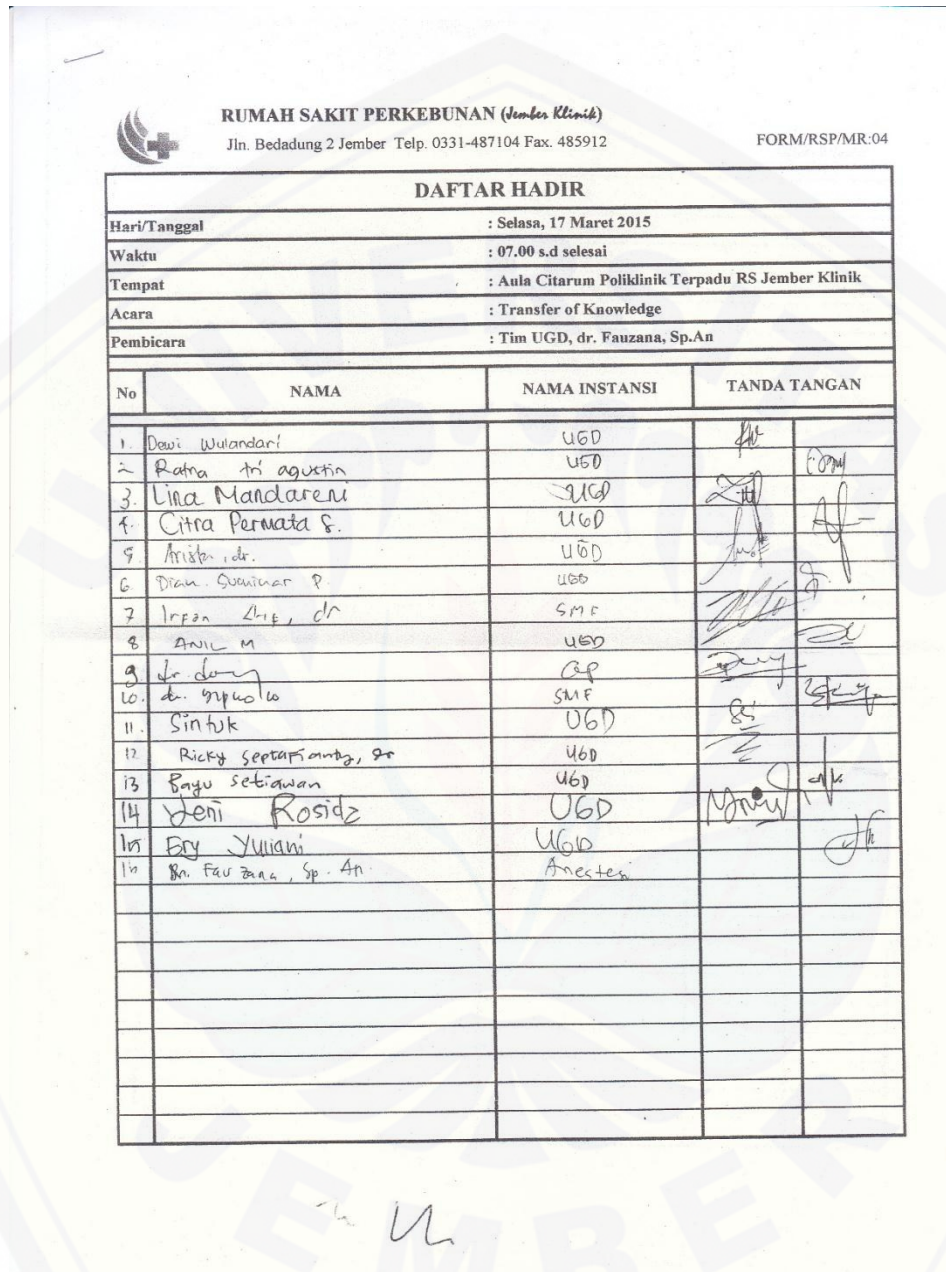 RUMAH SAKIT PERKEBUNAN (Jember Klinik)
Jln. Bedadung 2 Jember Telp. 0331-487104 Fax. 485912
FORM/RSP/MR:04
DAFTAR HADIR
Hari/Tanggal : Selasa, 17 Maret 2015
Waktu : 07.00 s.d selesai
Tempat : Aula Citarum Poliklinik Terpadu RS Jember Klinik
Acara : Transfer of Knowledge
Pembicara : Tim UGD, dr. Fauzana, Sp.An
No NAMA NAMA INSTANSI TANDA TANGAN
1. Dewi Wulandari UGD
2 Ratna tri agustin UGD
3. Lina Mandareni UGD
4. Citra Permata S. UGD
5. , dr. UGD
6. Dian P. UGD
7 Irfan , dr SMF
8 ANIL M UGD
9 dr.
10. dr. SMF
11. Sintuk UGD
12 Ricky Septafianty, UGD
13 Bayu Setiawan UGD
14 Yeni Rosida UGD
15 Ery Yuliani UGD
16 Fauzana, Sp. An. Anestesi
UNIVERSITAS
JEMBER